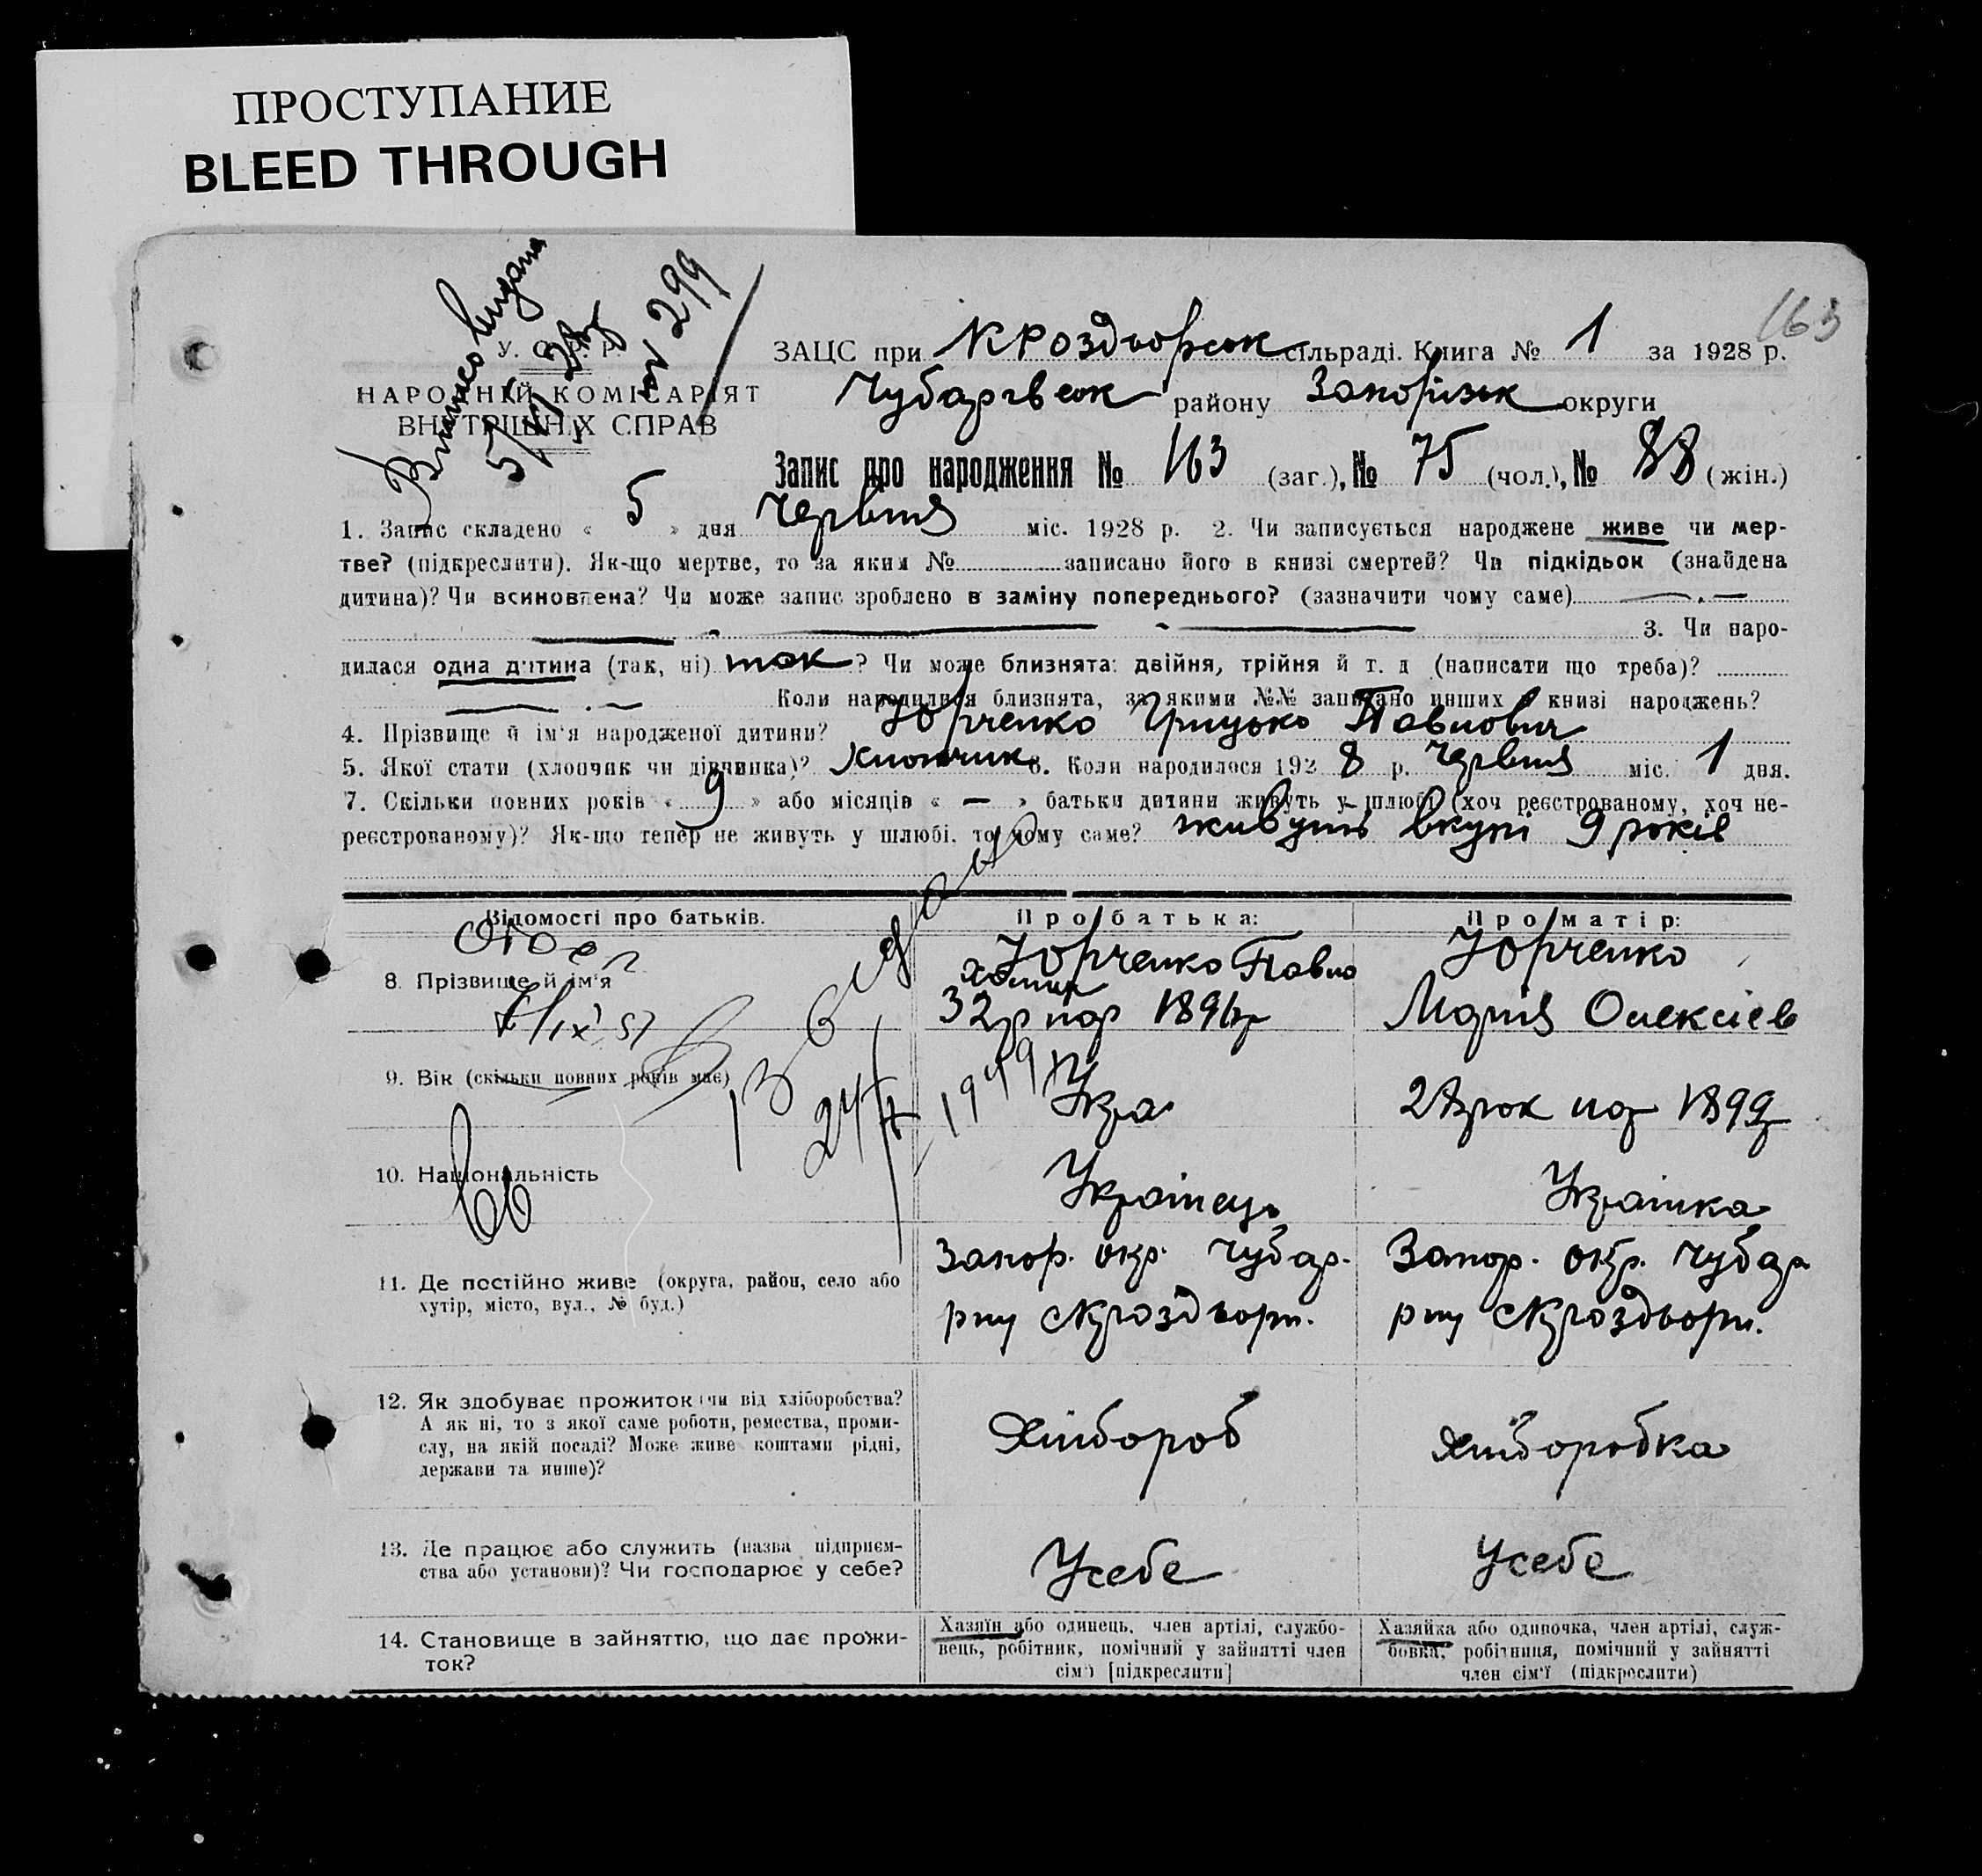 ПРОСТУПАНИЕ
BLEED THROUGH
163
Виписка видана
№ 299
У. С. Р. Р.
НАРОДНІЙ КОМІСАРІЯТ
ВНУТРІШНІХ СПРАВ
ЗАЦС при Кроздорськ сільраді. Книга № 1 за 1928 р.
Чубарівськ району Запоріжськ округи
Запис про народження № 163 (заг.), № 75 (чол.), № 88 (жін.)
1. Запис складено « 5 » дня Червня міс. 1928 р. 2. Чи записується народжене живе чи мер-
тве? (підкреслити). Як-що мертве, то за яким № записано його в книзі смертей? Чи підкідьок (знайдена
дитина)? Чи всиновлена? Чи може запис зроблено в заміну попереднього? (зазначити чому саме)
3. Чи наро-
дилася одна дитина (так, ні) так? Чи може близнята: двійня, трійня й т. д (написати що треба)?
Коли народилися близнята, за якими №№ записано инших в книзі народжень?
4. Прізвище й ім'я народженої дитини? Юрченко Грицько Павлович
5. Якої стати (хлопчик чи дівчинка)? Хлопчик 6. Коли народилося 1928 р. Червня міс. 1 дня.
7. Скільки повних років « 9 » або місяців « — » батьки дитини живуть у шлюбі (хоч реєстрованому, хоч не-
реєстрованому)? Як-що тепер не живуть у шлюбі, то чому саме? живуть вкупі 9 років
Відомості про батьків.
Про батька:
Про матір:
8. Прізвище й ім'я
Юрченко Павло
32 р 1896 р
Юрченко
Марія Олексієв
9. Вік (скільки повних років має)
Укра
28 рок 1899 р
1949
10. Національність
Українець
Українка
11. Де постійно живе (округа, район, село або
хутір, місто, вул., № буд.)
Запор. окр. Чубар.
рну с Кроздворн.
Запор. окр. Чубар
рну с Кроздворн.
12. Як здобуває прожиток чи від хліборобства?
А як ні, то з якої саме роботи, ремества, проми-
слу, на якій посаді? Може живе коштами рідні,
держави та инше)?
Хлібороб
Хліборобка
13. Де працює або служить (назва підприєм-
ства або установи)? Чи господарює у себе?
Усебе
Усебе
14. Становище в зайняттю, що дає прожи-
ток?
Хазяїн або одинець, член артілі, службо-
вець, робітник, помічний у зайнятті член
сім'ї [підкреслити]
Хазяйка або одиночка, член артілі, служ-
бовка, робітниця, помічний у зайнятті
член сім'ї (підкреслити)